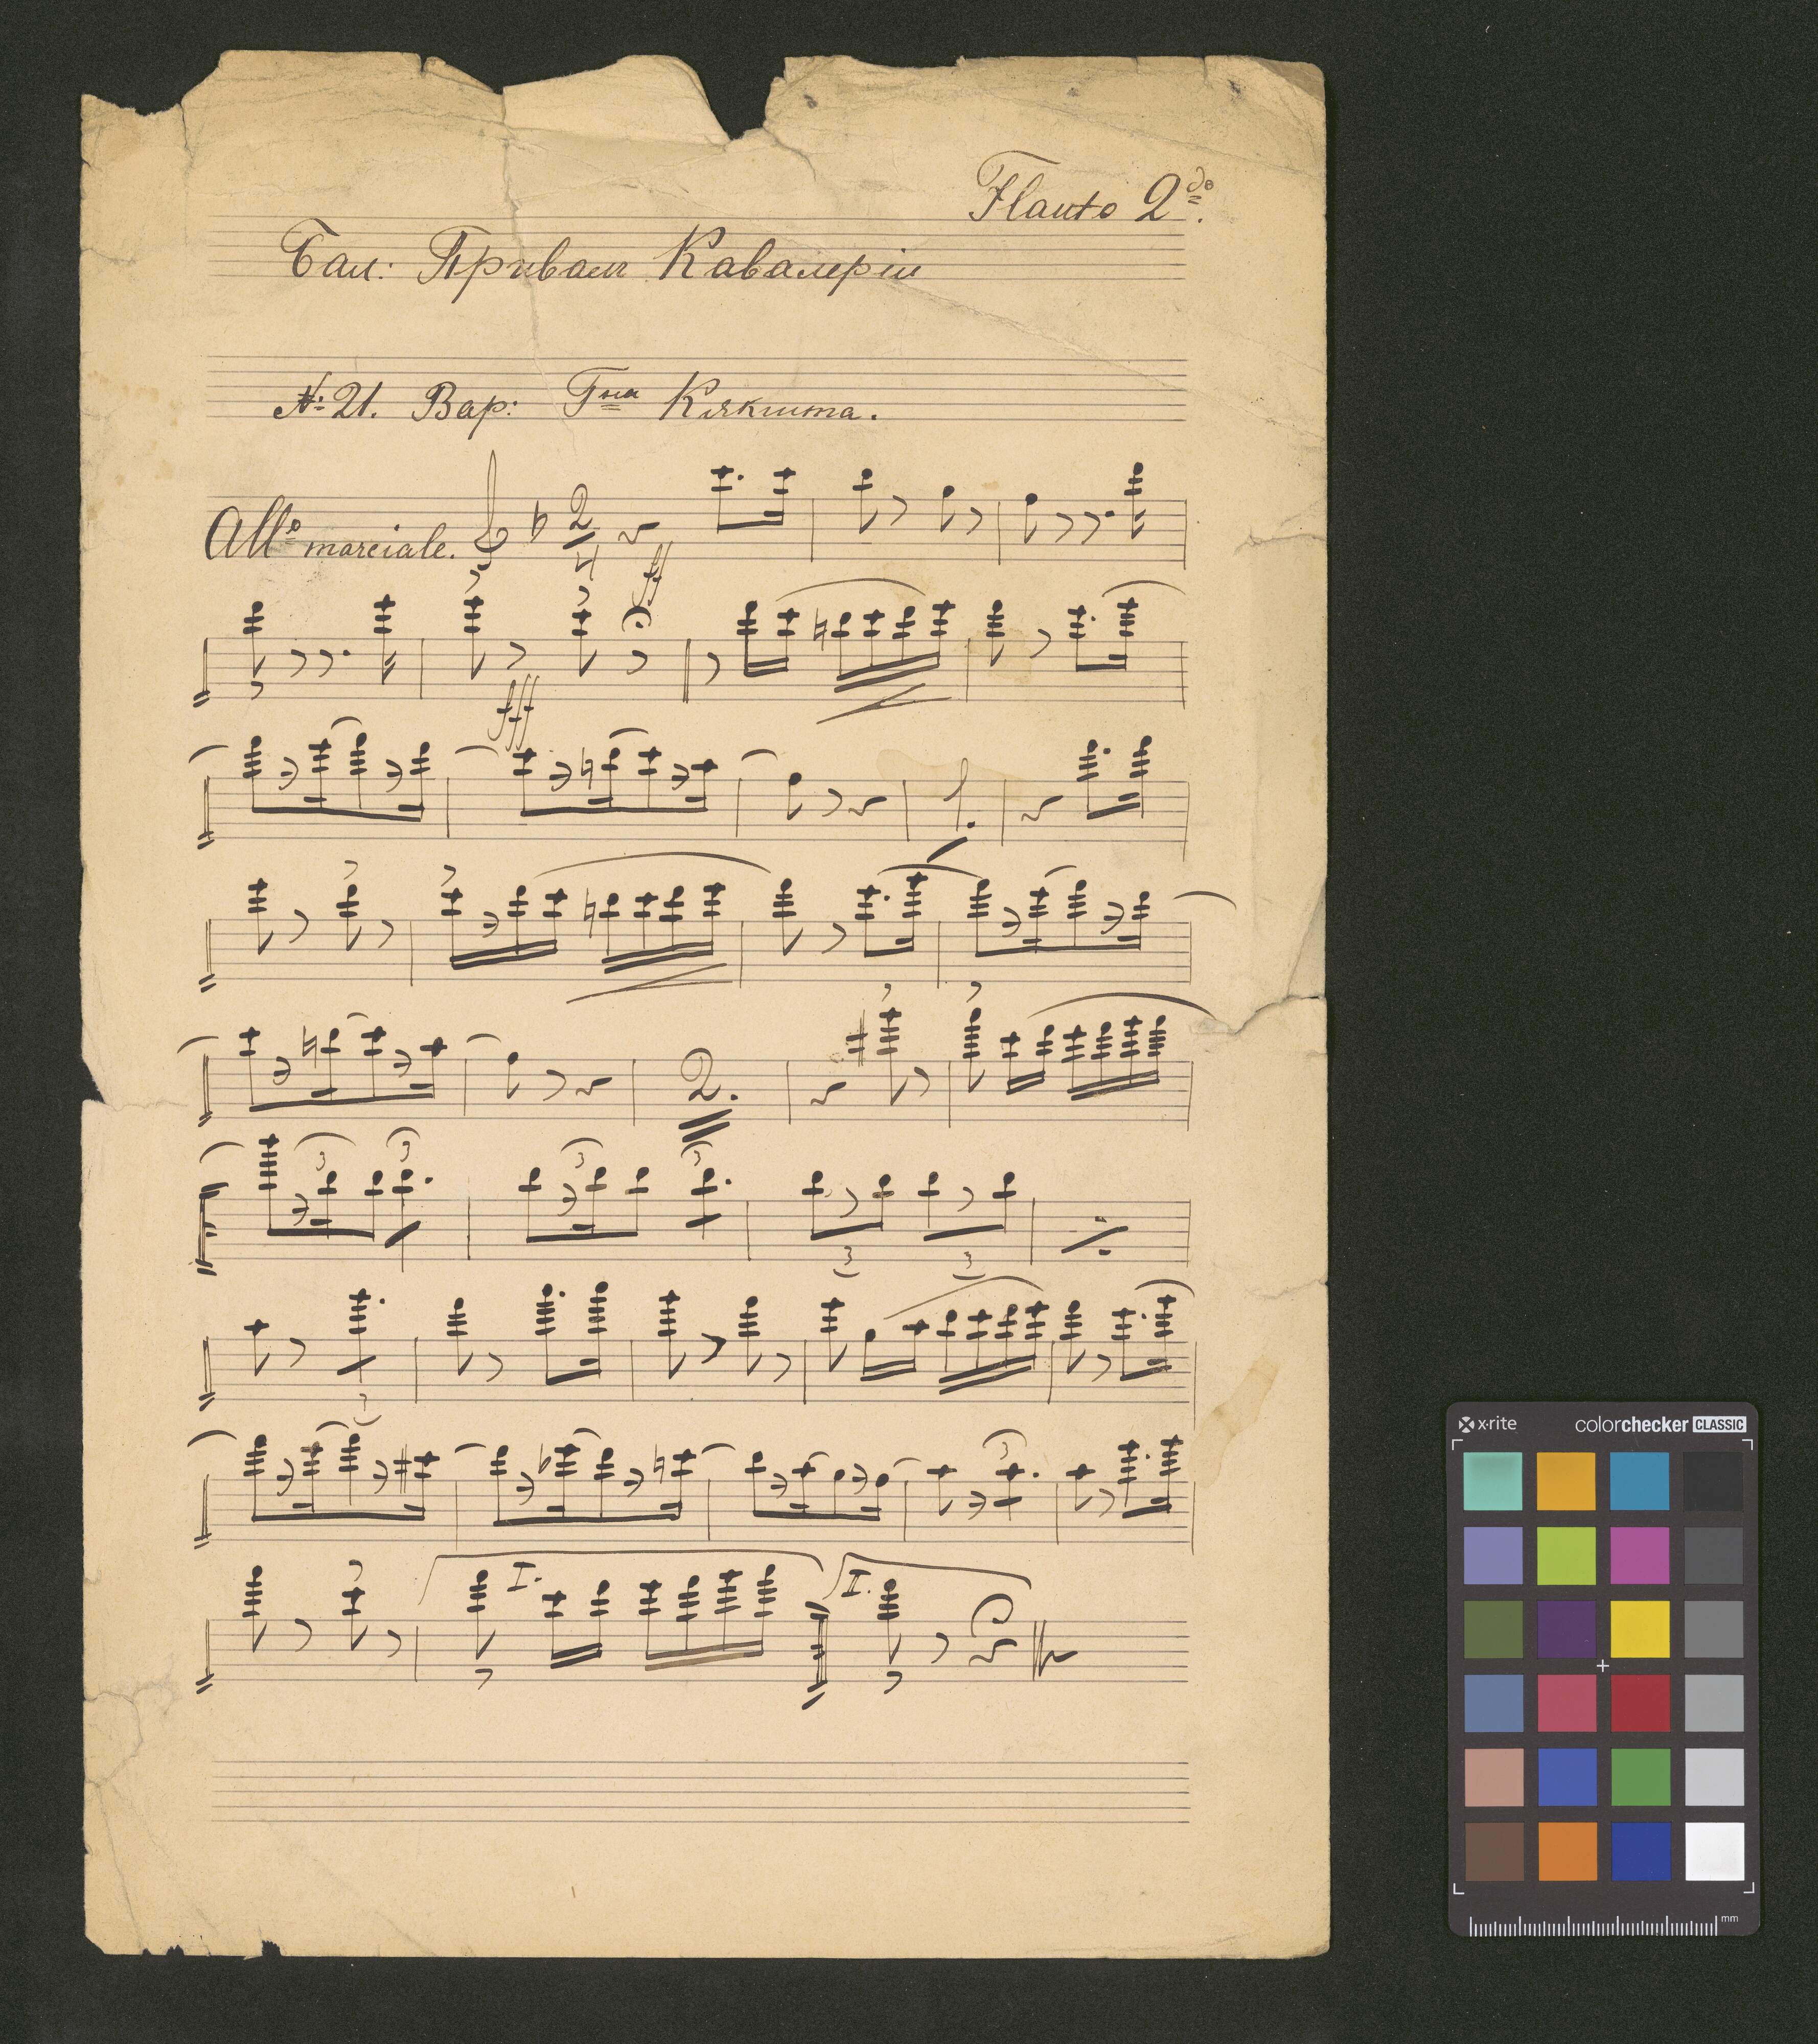 Flauto 2do.
Бал: Привалъ Кавалеріи
№ 21. Вар: Гна Кякшта.
Allo marciale.
2
4
ff
fff
1.
2.
3 3
3 3
3 3
3
3
I. I.
x·rite colorchecker CLASSIC
mm